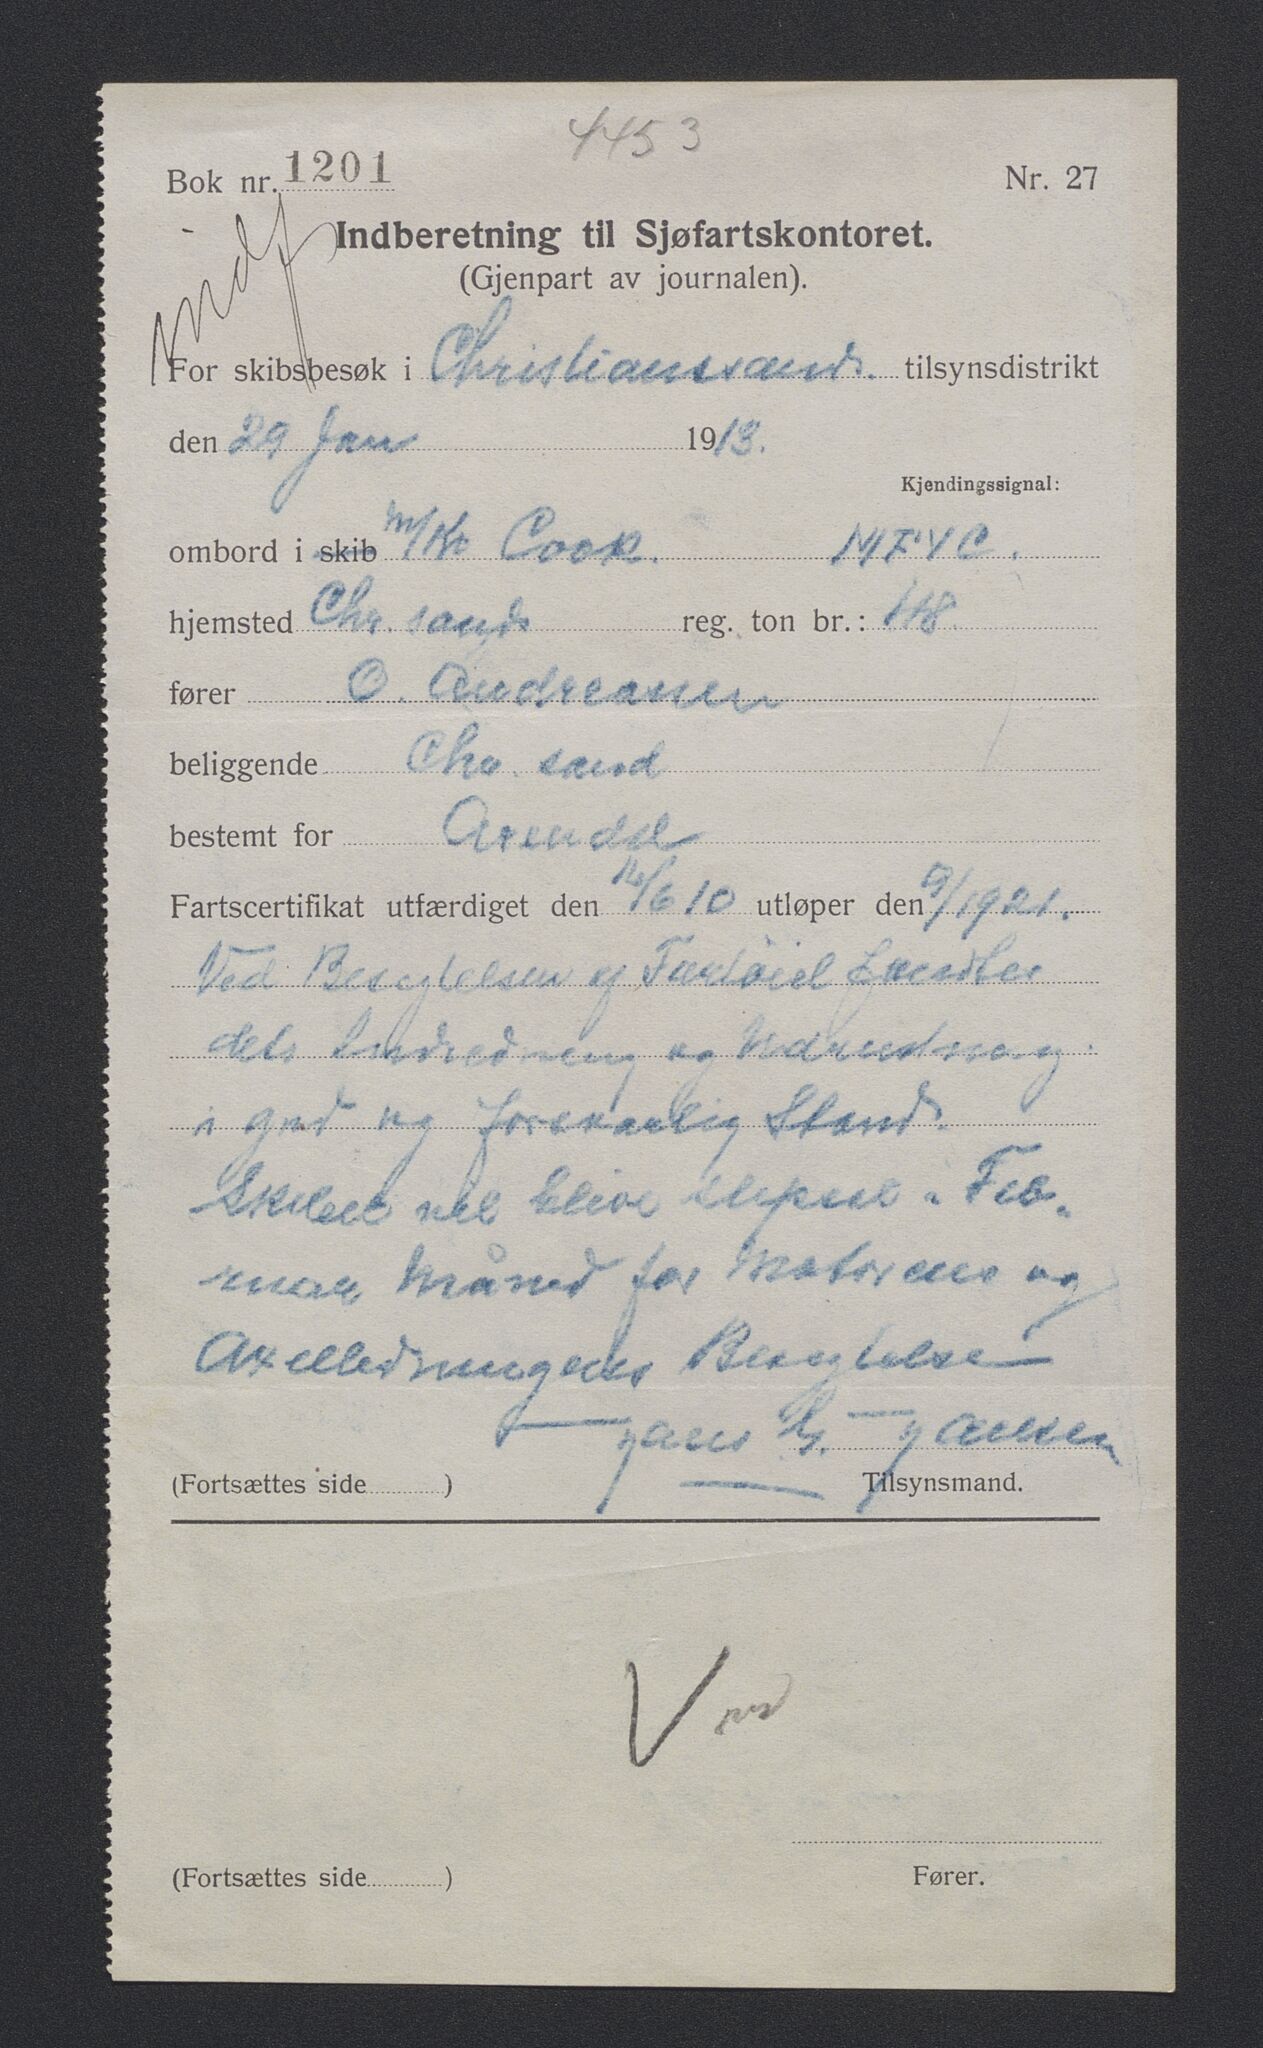 4453
Bok nr. 1201 Nr. 27
indf
Indberetning til Sjøfartskontoret.
(Gjenpart av journalen).
For skibsbesøk i Christianssands. tilsynsdistrikt
den 29 Jan 1913.
Kjendingssignal:
ombord i skib m/Kr Cook. MFYC.
hjemsted Chr. sand reg. ton br.: 118.
fører O. Andreasen
beliggende Chr. sand
bestemt for Arendal
Fartscertifikat utfærdiget den /6 10 utløper den 9/1921.
Ved Besigtelsen af Fartøiet fandtes
dets Indredning og Udrustning
i god og forsvarlig Stand.
Skibet vil blive slipsat i Feb-
ruar Måned for Motorens og
Axelledningens Besigtelse
Hans Hansen
(Fortsættes side ) Tilsynsmand.
V
(Fortsættes side ) Fører.